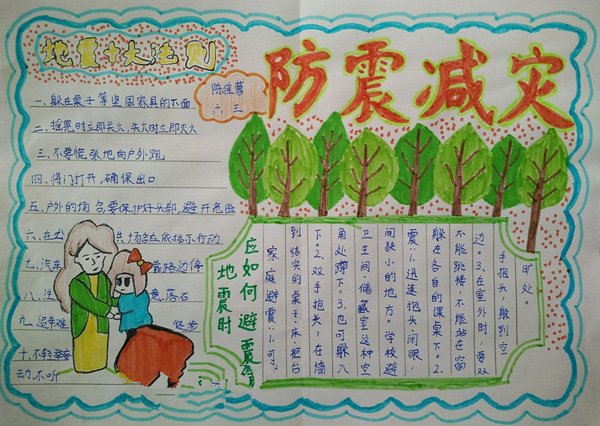 地震十大法则
防震减灾
陈佳
六、三
一、躲在桌子等坚固家具的下面
二、摇晃时立即关火,失火时立即灭火
三、不要慌张地向户外跑
四、将门打开,确保出口
五、户外的场合要保护好头部,避开危险
六、在公 共场合应依指示行动
七、汽车 靠路边停
八、注 意、落石
九、避难 徒步
十、不轻
动,不听
地震时
应如何避震
家庭避震:1、可
到结实的桌子、床、柜台
下。2、双手抱头,在墙
角处蹲下。3、也可躲入
卫生间,储藏室这种空
间狭小的地方。学校避
震:1、迅速抱头闭眼,
躲在各自的课桌下。2、
不能跳楼,不能站在窗
边。3、在室外时,要双
手抱头,躲到空
旷处。